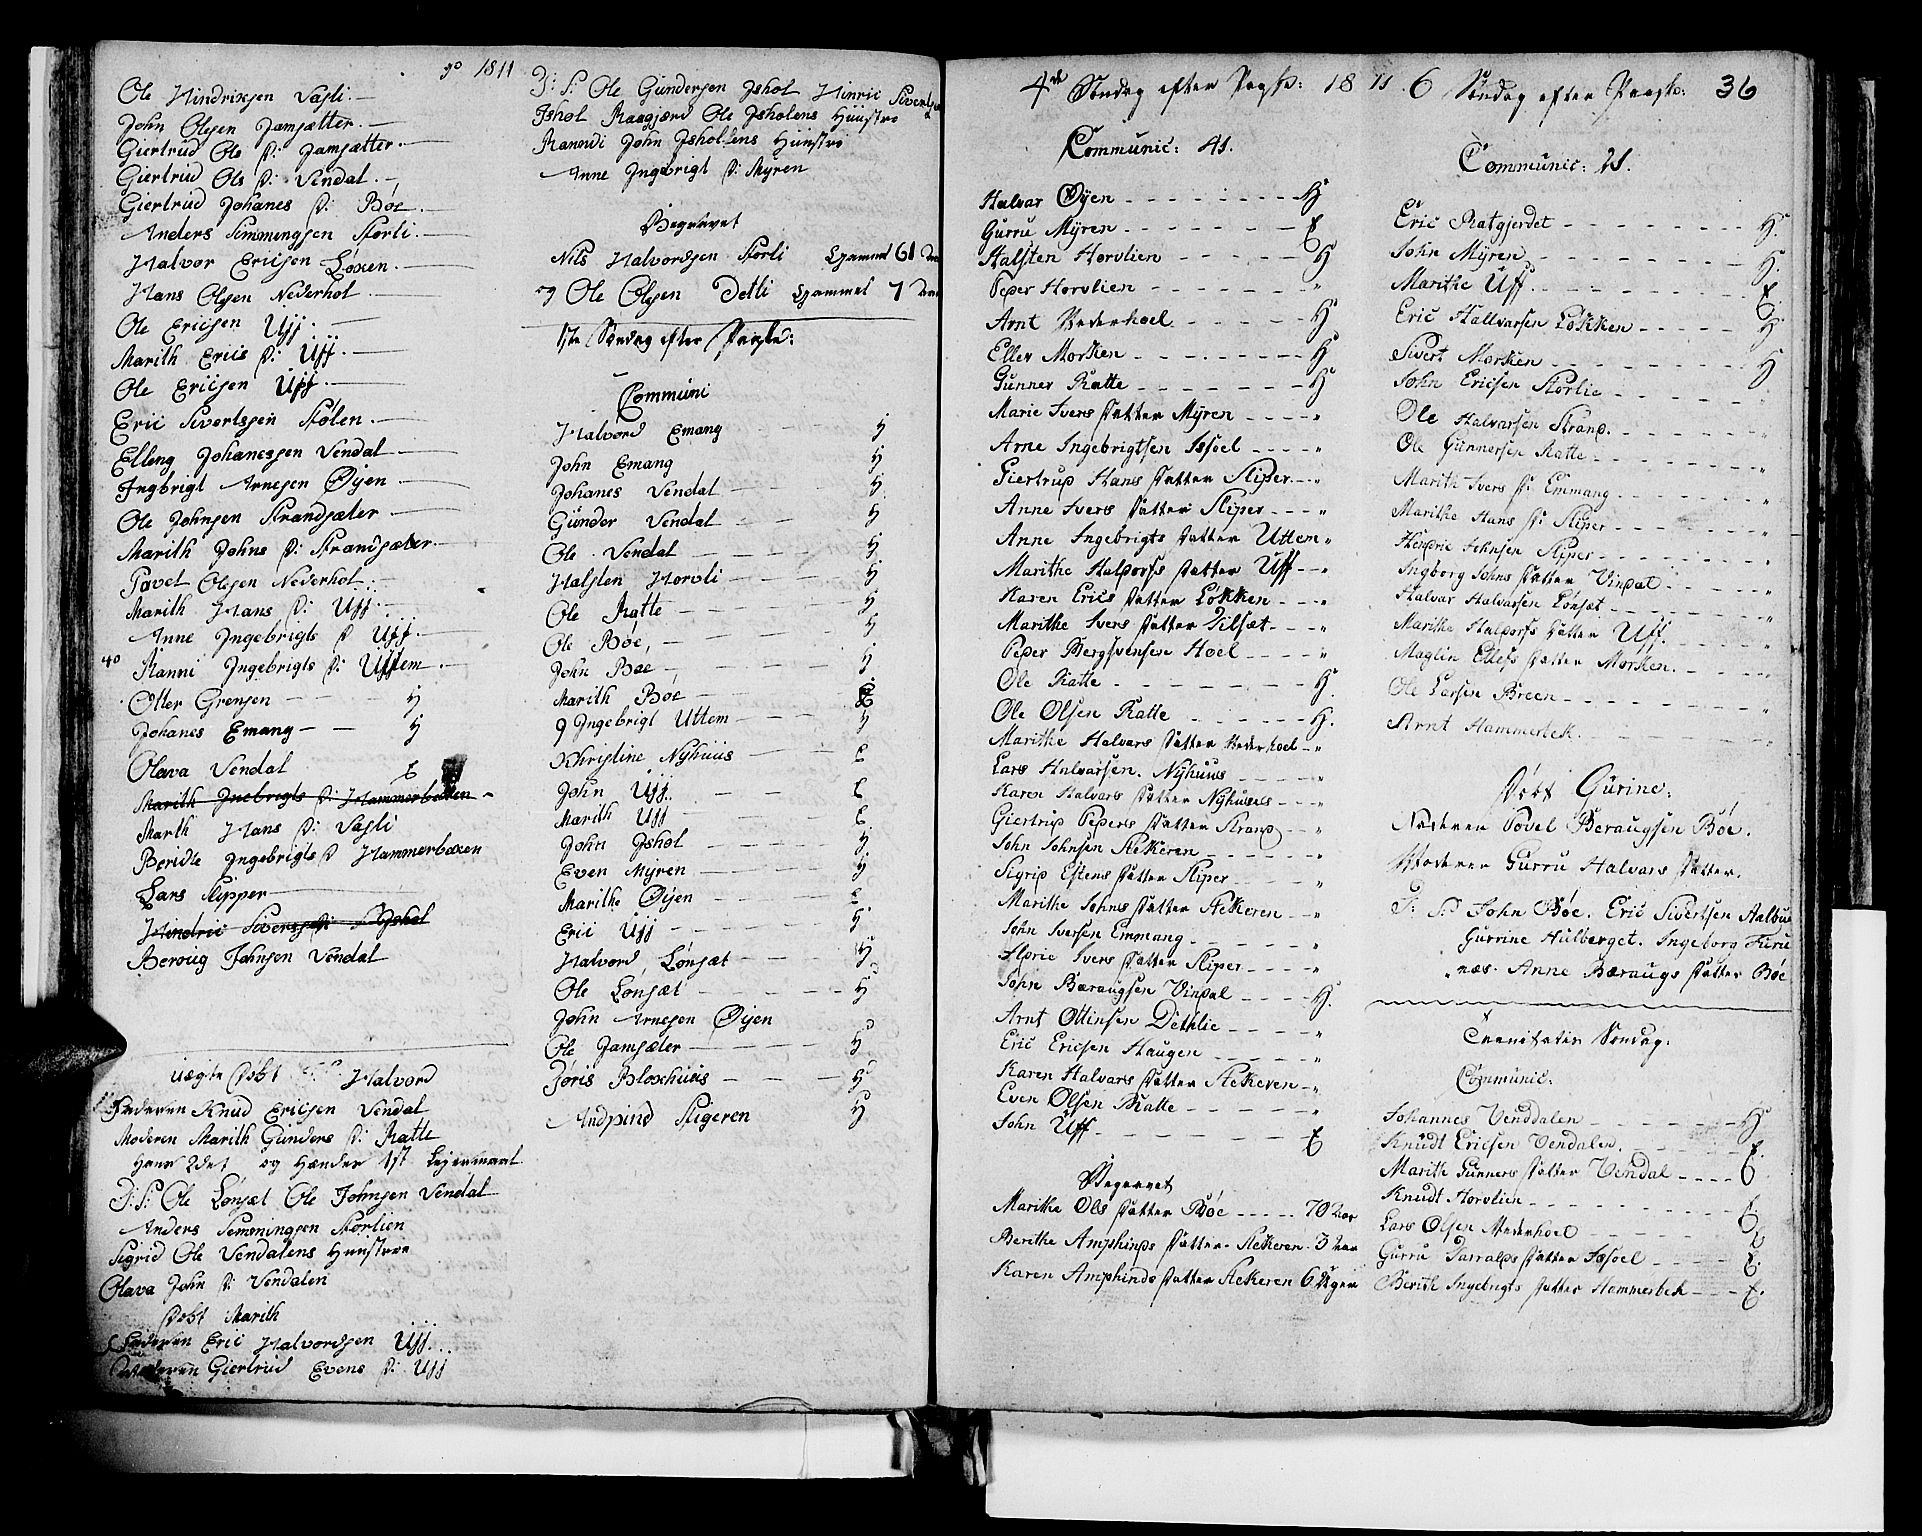 1811
Ole Hindrixsen Vasli
John Olesen Jamsætter
Giertrud Ole D: Jamsætter
Giertrud Ole D: Vendal
Giertrud Johanes D: Böe
Anders Simmingsen Storli
Halvor Ericsen Löxen
Hans Olesen Nederhol
Ole Ericsen Uff
Marith Erics D: Uff
Ole Ericsen Uff
Eric Sivertsgen Stölen
Elleng Johanessen Vendal
Ingbrigt Arnesen Öyen
Ole Johnsen Strandsæter
Marith Johns D: Strandsæter
Povel Olesen Nederhol
Marith Hans D: Uff
Anne Ingebrigts D Uff
40 Ranni Ingebrigts D: Uttem
Otter Grensen H
Johanes Emang H
Olava Vendal E
Marith Inebrigts D: Hammerbækken
Marth Hans D: Vasli
Beridte Ingebrigts D Hammerboxen
Lars Slipper
Hindric Siversen Ishol
Beroug Johnsen Vendal
uægte Döbt Halvord
Faderen Knud Ericsen Vendal
Moderen Marith Gunders D: Ratte
Hans 2det og Hændes 1st Leiermaal
F: S: Ole Lönsæt Ole Johnsen Vendal
Anders Semmingsen Storlien
Sigrid Ole Vendalens Hunstroe
Olava John D: Vendalen
Döbt Marith
Faderen Eric Halvordsen Uff
Moderen Giertrud Evens D: Uff
F: S: Ole Gundersen Ishol Hinric Sivertsen
Ishol Raagjærd Ole Isholens Huustro
Ranndi John Isholens Hunstro
Anne Ingebrigt D: Myren
Begravet
Nils Halvordsen Storli Gammel 61
og Ole Olesen Detli Gammel 7
1ste Söndag efter Paaske:
Communi
Halvord Emang H
John Emang H
Johanes Vendal H
Günder Vendal H
Ole Vendal H
Halsten Horvli H
Ole Ratte H
Ole Böe H
John Böe H
Marith Böe E
9 Ingebrigt Uttem H
Khristine Nyhuus E
John Uff E
Marith Uff E
John Ishol H
Even Myren H
Marithe Öyen E
Eric Uff H
Halvord Lönsæt H
Ole Lönsæt H
John Arnesen Öyen
Ole Jamsæter H
Joris Bloxhuus H
Andpind Stigeren H
4de Söndag efter Paaske: 1811.
Communic: 41.
Halvar Öyen H
Gurru Myren E
Halsten Horvlien H
Peder Horvlien "
Arnt Nederhoel H
Ellev Morken H
Gunner Ratte H
Marie Ivers Datter Myren "
Arne Ingebrigtsen Issoel "
Giertrud Hans Datter Sliper "
Anne Ivers Datter Sliper "
Anne Ingebrigts Datter Uttem "
Marithe Halvors Datter Uff "
Karen Erics Datter Lökken "
Marithe Ivers Datter Vilsæt "
Peder Bergsvensen Hoel "
Ole Ratte H.
Ole Olsen Ratte H.
Marithe Halvars Datter Nederhoel "
Lars Halvarsen. Nyhuus "
Karen Halvars Datter Nyhuses "
Giertrud Peders Datter Strand "
John Johnsen Stekeren "
Sigrid Estens Datter Sliper "
Marithe Johns Datter Stekeren "
John Iversen Emmang "
Aldrie Ivers Datter Sliper "
John Bæraugsen Vindal H.
Arnt Ottinsen Dethlie "
Eric Ericsen Haugen "
Karen Halvars Datter Stekeren "
Even Olsen Ratte "
John Uff E
Begravet
Marithe Ols Datter Böe 70 Aar
Berithe Amphinds Datter Stekeren 3 Aar
Karen Amphinds Datter Stekeren 6 Uger
6 Söndag efter Paaske: 36
Communic: 21.
Eric Ratgjerdet H.
John Myren H.
Marithe Uff. E
Eric Hallvarsen Lökken H
Sivert Morken H
John Ericsen Storlie "
Ole Halvarsen Strand. "
Ole Gunnersen Ratte "
Marith Ivers D: Emmang "
Marithe Hans D: Sliper "
Hendric Johnsen Sliper "
Ingborg Johns Datter Vindal "
Halvar Halvarsen Lönsæt "
Marithe Halvors Datter Uff. "
Maglin Ellefs Datter Morken. "
Ole Larsen Breen "
Arnt Hammerbek. "
Döbt Gürine:
Faderen Povel Beraugsen Böe.
Moderen Gurru Halvars Datter.
F: S: John Böe. Eric Sivertsen Aalbu
Gurrine Hulberget. Ingeborg Furu
næs. Anne Bæraugs Datter Böe
Trenitatis Söndag:
Communic:
Johannes Venddalen H
Knudt Ericsen Vendalen. E
Marith Gunners Datter Vendal E
Knudt Horvlien
Lars Olsen Nederhoel E
Gurru Tarralds Datter Issoel E
Berith Ingebrigts Datter Hammerbek E.